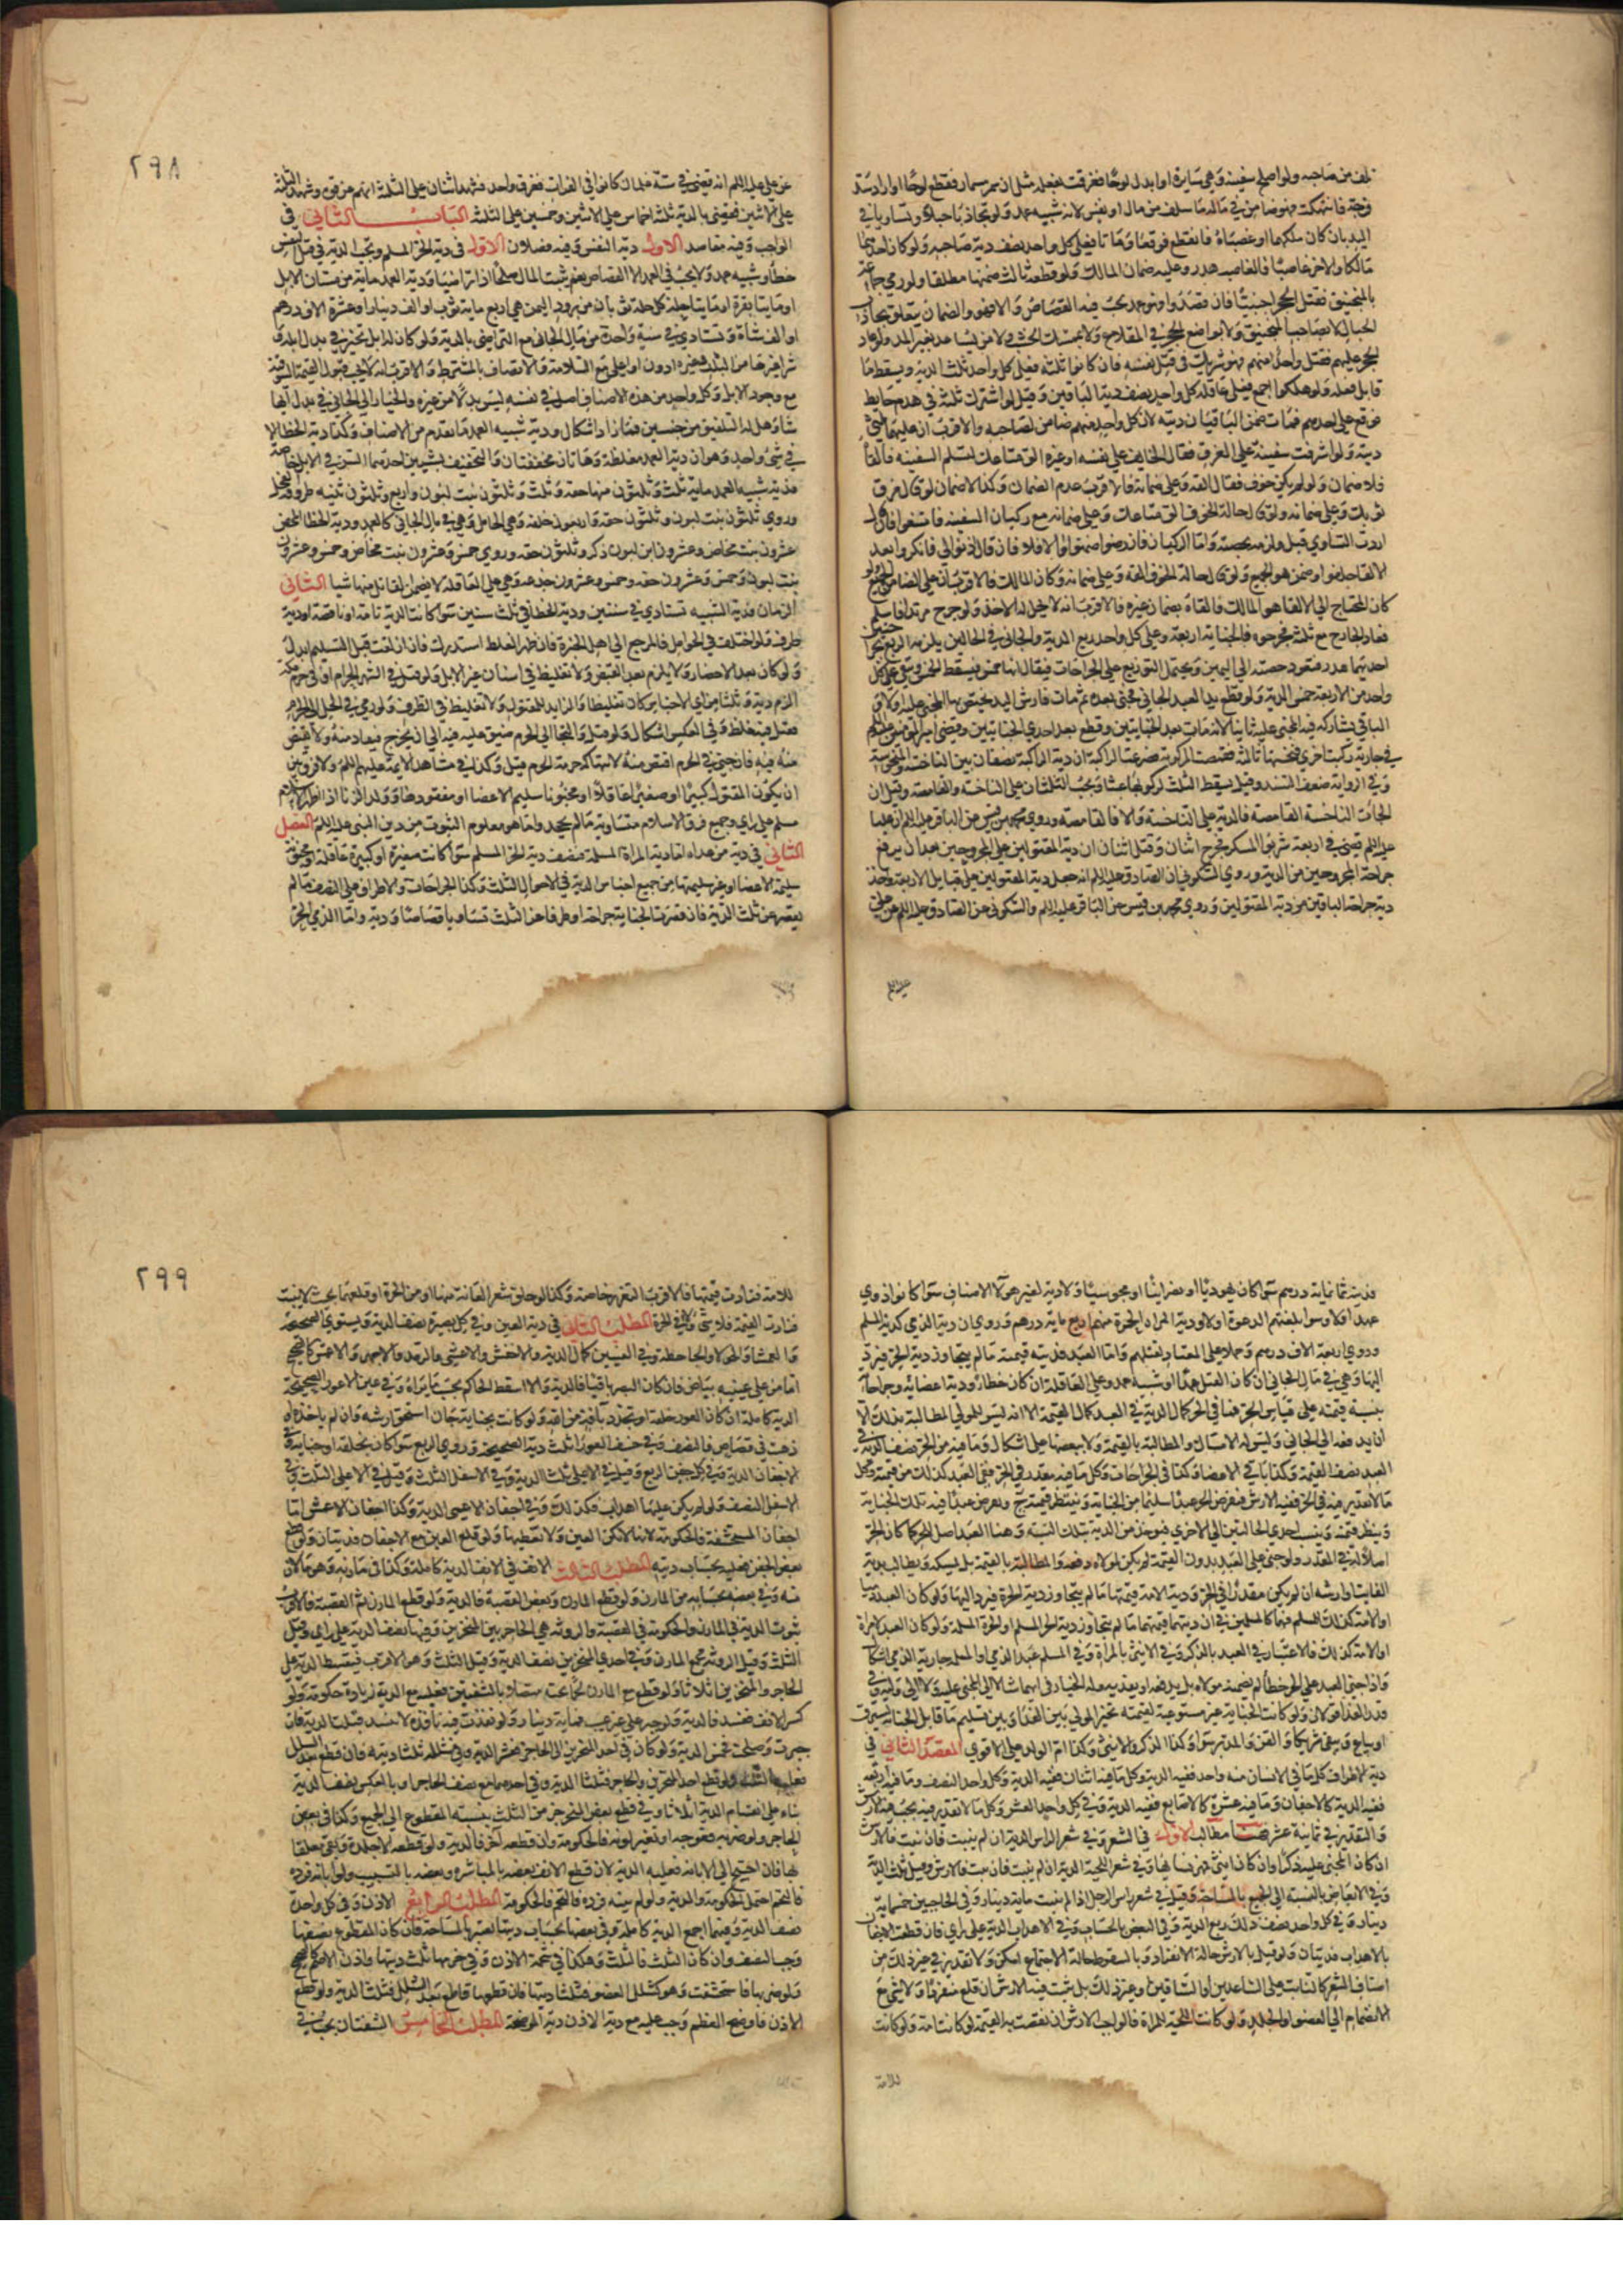 تلف من صاحبه ولو اصلح سفينة وهي سايرة او ابدل لوحا فغرقت بفعله مثل ان سمر مسمار فقلع لوحا او اراد سد
فرجة فانهتكت فهو ضامن في ماله ما يتلف من مال او نفس لانه شبيه عمد ولو تجاذبا حبلا وتساويا في
اليد بان كان ملكهما او غصباه فانقطع فوقعا وماتا فعلى كل واحد نصف دية صاحبه ولو كان احدهما
مالكا والاخر غاصبا فالغاصب هدر وعليه ضمان المالك ولو قطعه ثالث ضمنهما مطلقا ولو رمى جماعة
بالمنجنيق فقتل الحجر اجنبيا فان قصدوا فهو عمد يجب فيه القصاص والا فهو والضمان يتعلق بجاذب
الحبال لا بصاحب المنجنيق ولا بواضع الحجر في المقلاع ولا بممسك الخشب ولا من يساعد بغير المد ولو عاد
الحجر عليهم فقتل واحدا منهم فهو شريك في قتل نفسه فان كانوا ثلثة فعلى كل واحد ثلث الدية ويسقط ما
قابل فعله ولو هلكوا اجمع فعلى عاقلة كل واحد نصف دية الباقين وقيل لو اشترك ثلثة في هدم حايط
فوقع على احدهم فمات ضمن الباقيان ديته لان كل واحد منهم ضامن لصاحبه والاقرب ان عليهما ثلثي
دية ولو اشرفت سفينة على الغرق فقال الخايف على نفسه او غيره الق متاعك لتسلم السفينة فالقاه
فلا ضمان ولو لم يكن خوف فقال القه وعلى ضمانه فالاقرب عدم الضمان وكذا لا ضمان لو قال مزق
ثوبك وعلى ضمانه ولو قال حالة الخوف الق متاعك وعلى ضمانه مع ركبان السفينة فامتنعوا فان قال
اردت التساوي قبل ولزمه بحصته واما الركبان فان رضوا ضمنوا والا فلا فان قال اذنوا لي فانكروا بعد
الالقاء حلفوا وضمن هو الجميع ولو قال حالة الخوف القه وعلى ضمانه وكان المالك فالاقرب ان على الضامن الجميع ولو
كان المحتاج الى الالقا هو المالك فالقاه بضمان غيره فالاقرب انه لا يحل له الاخذ ولو جرح مرتدا فاسلم
فعاد الجارح مع ثلثة فجرحوه فالجناية اربعة وعلى كل واحد ربع الدية والجاني في الحالين يلزمه الربع
احديهما هدر فتعود حصته الى الثمن ويحتمل التوزيع على الجراحات فيقال انها خمس فيسقط الخمس ويبقى على كل
واحد من الاربعة خمس الدية ولو قطع يد العبد الجاني فجنى بعده ثم مات فارش اليد يختص بها المجنى عليه اولا
الباقي يشاركه فيه المجنى عليه ثانيا لانه مات بعد الجنايتين وقطع بعد احدى الجنايتين وقضى امير المؤمنين عليه السلام
في جارية ركبت اخرى فنخستها ثالثة فقمصت المركوبة فصرعت الراكبة ان دية الراكبة نصفان بين الناخسة والمنخوسة
وفي الرواية ضعف السند وقيل يسقط الثلث لركوبها عبثا ويجب الثلثان على الناخسة والقامصة وقيل ان
الجات الناخسة القامصة فالدية على الناخسة والا فالقامصة وروى محمد بن قيس عن الباقر عليه السلم ان عليا
عليه السلم قضى في اربعة شربوا المسكر فجرح اثنان وقتل اثنان ان دية المقتولين على المجروحين بعد ان يرفع
جراحة المجروحين من الدية وروى السكوني ان الصادق عليه السلم انه جعل دية المقتولين على قبايل الاربعة واخذ
دية جراحة الباقين من دية المقتولين وروى محمد بن قيس عن الباقر عليه السلم والسكوني عن الصادق عليه السلم عن علي
عليه السلم
٢٩٨
عن علي عليه السلم انه قضى في ستة غلمان كانوا في الفرات فغرق واحد فشهد اثنان على الثلثة انهم غرقوه وشهد الثلثة
على الاثنين فقضى بالدية ثلثة اخماس على الاثنين وخمسين على الثلثة الباب الثاني في
الواجب وفيه مقاصد الاول دية النفس وفيه فصلان الاول في دية الحر المسلم وتجب الدية في قتل النفس
خطأ وشبيه عمد ولا يجب في العمد الا القصاص نعم يثبت المال صلحا اذا تراضيا ودية العمد ماية من مسان الابل
او مايتا بقرة او مايتا حلة كل حلة ثوبان من برود اليمن هي اربع ماية ثوب او الف دينار او عشرة الاف درهم
او الف شاة وتستادى في سنة واحدة من مال الجاني مع التراضي بالدية ولو كان له ابل تخير في بدل ابله او
شراء غيرها من البلد وغيره ادون او اعلى مع السلامة والاتصاف بالمشترط والاقرب انه لا يجب قبول القيمة السوقية
مع وجود الابل وكل واحد من هذه الاصناف اصل في نفسه ليس بدلا من غيره والخيار الى الجاني في بدل ايها
شاء وهل له التلفيق من جنسين فما زاد اشكال ودية شبيه العمد ما تقدم من الاصناف وكذا دية الخطا الا
في شئ واحد وهو ان دية العمد مغلظة وهاتان مخففتان والتخفيف بشيئين احدهما السن في الابل خاصة
فدية شبيه العمد ماية ثلث وثلثون منها حقة وثلث وثلثون بنت لبون واربع وثلثون ثنية طروقة الفحل
وروى ثلثون بنت لبون وثلثون حقة واربعون خلفة وهي الحامل وهي في مال الجاني كالعمد ودية الخطا المحض
عشرون بنت مخاض وعشرون ابن لبون ذكر وثلثون حقة وروى خمس وعشرون بنت مخاض وخمس وعشرون
بنت لبون وخمس وعشرون حقة وخمس وعشرون جذعة وهي على العاقلة لا يضمن القاتل منها شيا الثاني
الزمان فدية الشبيه تستادى في سنتين ودية الخطا في ثلث سنين سوا كانت الدية تامة او ناقصة او دية
طرف ولو اختلف في الحوامل فالمرجع الى اهل الخبرة فان ظهر الغلط استدرك فان ازلقت قبل التسليم ابدل
ولو كان بعد الاحضار ولا يلزم بعد القبض ولا تغليظ في اسنان غير الابل ولو قتل في الشهر الحرام او في حرم مكة
الزم دية وثلثا من اي الاجناس كان تغليظا والزايد للمقتول ولا تغليظ في الطرف ولو رمى في الحل الى الحرم
فقتل فيه غلظ وفي العكس اشكال ولو قتل والتجا الى الحرم ضيق عليه فيه الى ان يخرج فيقاد منه ولا يقتص
منه فيه فان جنى في الحرم اقتص منه لانتهاكه حرمة الحرم قيل وكذا في مشاهد الايمة عليهم السلم ولا فرق بين
ان يكون المقتول كبيرا او صغيرا عاقلا او مجنونا سليم الاعضا او مفقودها وولد الزنا اذا اظهر الاسلام
مسلم على راي وجميع فرق الاسلام متساوية ما لم يجحد واما هو معلوم الثبوت من دين النبي عليه السلم الفصل
الثاني في دية من عداه اما دية المراة المسلمة فنصف دية الحر المسلم سوا كانت صغيرة او كبيرة عاقلة او مجنونة
سليمة الاعضا او غير سليمتها من جميع اجناس الدية في الاحوال الثلث وكذا الجراحات والاطراف على النصف ما لم
يقصر عن ثلث الدية فان قصرت الجناية جراحة او طرفا عن الثلث تساويا قصاصا ودية واما الذمي الحر
فديته ثمانماية درهم سوا كان يهوديا او نصرانيا او مجوسيا ولا دية لغير هولا الاصناف سوا كانوا ذوي
عهد اولا وسوا بلغتهم الدعوة اولا ودية المراة الحرة منهم اربع ماية درهم وروى ان دية الذمي كدية المسلم
وروى اربعة الاف درهم وحملا على المعتاد لقتلهم واما العبد فديته قيمته ما لم يتجاوز دية الحر فيرد
اليها وهي في مال الجاني ان كان القتل عمدا او شبيه عمد وعلى العاقلة ان كان خطأ ودية اعضائه وجراحاته
بنسبة قيمته على قياس الحر فما في الحر كمال الدية في العبد كمال القيمة الا انه ليس للمولى المطالبة بذلك الا
ان يدفعه الى الجاني وليس له الامساك والمطالبة بالقيمة ولا ببعضها على اشكال وما فيه من الحر نصف الدية في
العبد نصف القيمة وكذا باقي الاعضا وكذا في الجراحات وكل ما فيه مقدر في الحر ففي العبد كذلك من قيمته وكل
ما لا تقدير فيه في الحر ففيه الارش فنفرض الحر عبدا سليما من الجناية وينظر قيمته ح ويفرض عبدا فيه تلك الجناية
وينظر قيمته وينسب احدى الحالتين الى الاخرى فيوخذ من الدية بتلك النسبة وهنا العبد اصل للحر كما كان الحر
اصلا له في المقدر ولو جنى على العبد بدون القيمة لم يكن لمولاه دفعه والمطالبة بالقيمة بل يمسكه ويطالب بدية
الفايت او ارشه ان لم يكن مقدرا في الحر ودية الامة قيمتها ما لم يتجاوز دية الحرة فيرد اليها ولو كان العبد ذميا
او الامة كذلك للمسلم فهما كالمسلمين في ان ديتهما قيمتهما ما لم يتجاوز دية الحر المسلم او الحرة المسلمة ولو كان العبد لامراة
او الامة كذلك فالاعتبار في العبد بالذكر وفي الانثى بالمراة وفي المسلم عبد الذمي والمسلم جارية الذمي اشكال
واذا جنى العبد على الحر خطأ لم يضمنه مولاه بل يدفعه او يفديه وله الخيار في ايهما شا لا الى المجنى عليه ولا الى وليه وفي
قدر الفدا قولان ولو كانت الجناية غير مستوعبة لقيمته تخير المولى بين الفدا وبين تسليم ما قابل الجناية ليسترق
او يباع ويبقى شريكا والقن والمدبر سوا وكذا الذكر والانثى وكذا ام الولد على الاقوى المقصد الثاني في
دية الاطراف كل ما في الانسان منه واحد ففيه الدية وكل ما فيه اثنان ففيه الدية وكل واحد النصف وما فيه اربعة
ففيه الدية كالاجفان وما فيه عشرة كالاصابع ففيه الدية وفي كل واحد العشر وكل ما لا تقدير فيه يجب فيه الارش
والتقدير في ثمانية عشر مطالب الاول في الشعر وفي شعر الراس الدية ان لم ينبت فان نبت فالارش
ان كان المجنى عليه ذكرا وان كان انثى مهر نسائها وفي شعر اللحية الدية ان لم ينبت فان نبت فالارش وقيل ثلث الدية
وفي الابعاض بالنسبة الى الجميع بالمساحة وقيل في شعر راس الرجل اذا لم ينبت ماية دينار وفي الحاجبين خمسماية
دينار وفي كل واحد نصف ذلك ربع الدية وفي البعض بالحساب وفي الاهداب الدية على راي فان قطعت الاجفان
بالاهداب فديتان ولو قيل بالارش حالة الانفراد وبالسقوط حالة الاجتماع امكن ولا تقدير في غير ذلك من
اصناف الشعر كالنابت على الساعدين او الساقين وغير ذلك بل يثبت فيه الارش ان قلع منفردا ولا شئ مع
الانضمام الى العضو او الجلد ولو كانت اللحية للمراة فالواجب الارش ان نقصت به القيمة لو كانت امة ولو كانت
للامة
٢٩٩
للامة فزادت قيمتها فالاقرب التعزير خاصة وكذا لو حلق شعر العانة منها او من الحرة او قلعها بحيث لا ينبت
فزادت القيمة فلا شئ في الحرة المطلب الثاني في دية العين وفي كل بصيرة نصف الدية ويستوي الصحيحة
والعمشا والحولا والجاحظة وفي العينين كمال الدية والاخفش والاعشى والارمد والاجهر والاعمش كالصحيح
اما من على عينيه بياض فان كان البصر باقيا فالدية والا اسقط الحاكم بحسب ما يراه وفي عين الاعور الصحيحة
الدية كاملة ان كان العور خلقة او تجدد بافة من الله ولو كانت بجناية جان استحق ارشه وان لم ياخذه او
ذهبت في قصاص فالنصف وفي خسف العورا ثلث دية الصحيحة وروى الربع سوا كان بخلقة او جناية وفي
الاجفان الدية وفي كل جفن الربع وقيل في الاعلى ثلثا الدية وفي الاسفل الثلث وقيل في الاعلى الثلث وفي
الاسفل النصف ولو لم يكن عليها اهداب فكذلك وفي اجفان الاعمى الدية وكذا اجفان الاعمش اما
اجفان المستحشفة فالحكومة لانها لا تكن العين ولا تغطيها ولو قلع العين مع الاجفان فديتان ولو قطع
بعض الجفن فعليه بحساب ديته المطلب الثالث الانف في الانف الدية كاملة وكذا في مارنه وهو ما لان
منه وفي بعضه بحسابه من المارن ولو قطع المارن وبعض القصبة فالدية ولو قطع المارن ثم القصبة فالاقرب
ثبوت الدية في المارن والحكومة في القصبة والروثة هي الحاجز بين المنخرين وفيها نصف الدية على راي وقيل
الثلث وقيل الروثة مجمع المارن وفي احدى المنخرين نصف الدية وقيل الثلث وهو الاقرب فيقسط الدية على
الحاجز والمنخرين اثلاثا ولو قطع مع المارن لحما تحته متصلا بالشفتين فعليه مع الدية زيادة حكومة ولو
كسر الانف ففسد فالدية ولو جبر على غير عيب فماية دينار ولو نفذت فيه نافذة لا تنسد فثلث الدية فان
جبرت وصلحت فخمس الدية ولو كان في احد المنخرين الى الحاجز فعشر الدية وفي شلله ثلثا ديته فان قطع بعد الشلل
فعليه الثلث ولو قطع احد المنخرين والحاجز فثلثا الدية وفي احدهما مع نصف الحاجز او بالعكس نصف الدية
بناء على انقسام الدية اثلاثا وفي قطع بعض المنخر جزء من الثلث بنسبة المقطوع الى الجميع وكذا في بعض
الحاجز ولو ضربه فعوجه او تغير لونه فالحكومة وان قطعه آخر فالدية ولو قطعه الا جلدة وبقي معلقا
بها فان احتيج الى الابانة فعليه الدية لان قطع الانف بعضه بالمباشرة وبعضه بالتسبيب ولو ابانه فرده
فالتحم احتمل الحكومة والدية ولو لم يبنه فرده فالتحم فالحكومة المطلب الرابع الاذن وفي كل واحدة
نصف الدية وفيهما اجمع الدية كاملة وفي بعضها بحساب ديتها يعتبر بالمساحة فان كان المقطوع نصفها
وجب النصف وان كان الثلث فالثلث وهكذا وفي شحمة الاذن وفي خرمها ثلث ديتها واذن الاصم كالصحيح
ولو ضربها فاستحشفت وهو كشلل العضو فثلثا ديتها فان قطعها قاطع بعد الشلل فثلث الدية ولو قطع
الاذن فاوضح العظم وجب عليه مع دية الاذن دية الموضحة المطلب الخامس الشفتان يجب في